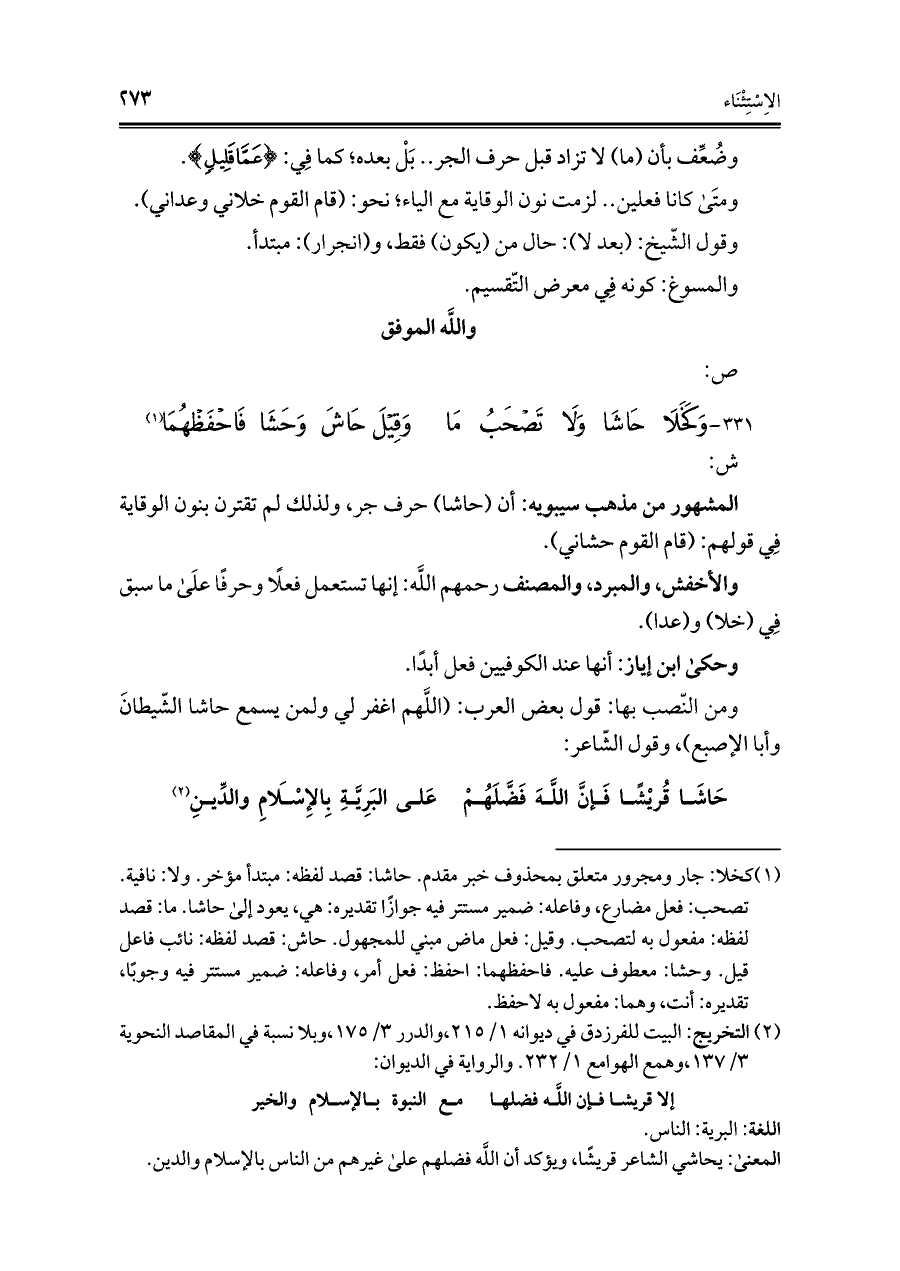 الِاسْتِثْنَاء ٢٧٣
وضُعِّف بأن (ما) لا تزاد قبل حرف الجر.. بَلْ بعده؛ كما فِي: ﴿عَمَّاقَلِيلٍ﴾.
ومتَىٰ كانا فعلين.. لزمت نون الوقاية مع الياء؛ نحو: (قام القوم خلاني وعداني).
وقول الشّيخ: (بعد لا): حال من (يكون) فقط، و(انجرار): مبتدأ.
والمسوغ: كونه فِي معرض التّقسيم.
واللَّه الموفق
ص:
٣٣١- وَكَخَلَا حَاشَا وَلَا تَصْحَبُ مَا وَقِيْلَ حَاشَ وَحَشَا فَاحْفَظْهُمَا(١)
ش:
المشهور من مذهب سيبويه: أن (حاشا) حرف جر، ولذلك لم تقترن بنون الوقاية
فِي قولهم: (قام القوم حشاني).
والأخفش، والمبرد، والمصنف رحمهم اللَّه: إنها تستعمل فعلًا وحرفًا علَىٰ ما سبق
فِي (خلا) و(عدا).
وحكىٰ ابن إياز: أنها عند الكوفيين فعل أبدًا.
ومن النّصب بها: قول بعض العرب: (اللَّهم اغفر لي ولمن يسمع حاشا الشّيطانَ
وأبا الإصبع)، وقول الشّاعر:
حَاشَـا قُرَيْشًـا فَـإنَّ اللَّـهَ فَضَّلَهُـمْ عَلـى البَرِيَّـةِ بِالإِسْـلَامِ والدِّيـنِ(٢)
(١) كخلا: جار ومجرور متعلق بمحذوف خبر مقدم. حاشا: قصد لفظه: مبتدأ مؤخر. ولا: نافية.
تصحب: فعل مضارع، وفاعله: ضمير مستتر فيه جوازًا تقديره: هي، يعود إلىٰ حاشا. ما: قصد
لفظه: مفعول به لتصحب. وقيل: فعل ماض مبني للمجهول. حاش: قصد لفظه: نائب فاعل
قيل. وحشا: معطوف عليه. فاحفظهما: احفظ: فعل أمر، وفاعله: ضمير مستتر فيه وجوبًا،
تقديره: أنت، وهما: مفعول به لاحفظ.
(٢) التخريج: البيت للفرزدق في ديوانه ١/ ٢١٥،والدرر ٣/ ١٧٥،وبلا نسبة في المقاصد النحوية
٣/ ١٣٧،وهمع الهوامع ١/ ٢٣٢. والرواية في الديوان:
إلا قريشـا فـإن اللَّـه فضلهـا مـع النبوة بـالإسـلام والخير
اللغة: البرية: الناس.
المعنىٰ: يحاشي الشاعر قريشًا، ويؤكد أن اللَّه فضلهم علىٰ غيرهم من الناس بالإسلام والدين.